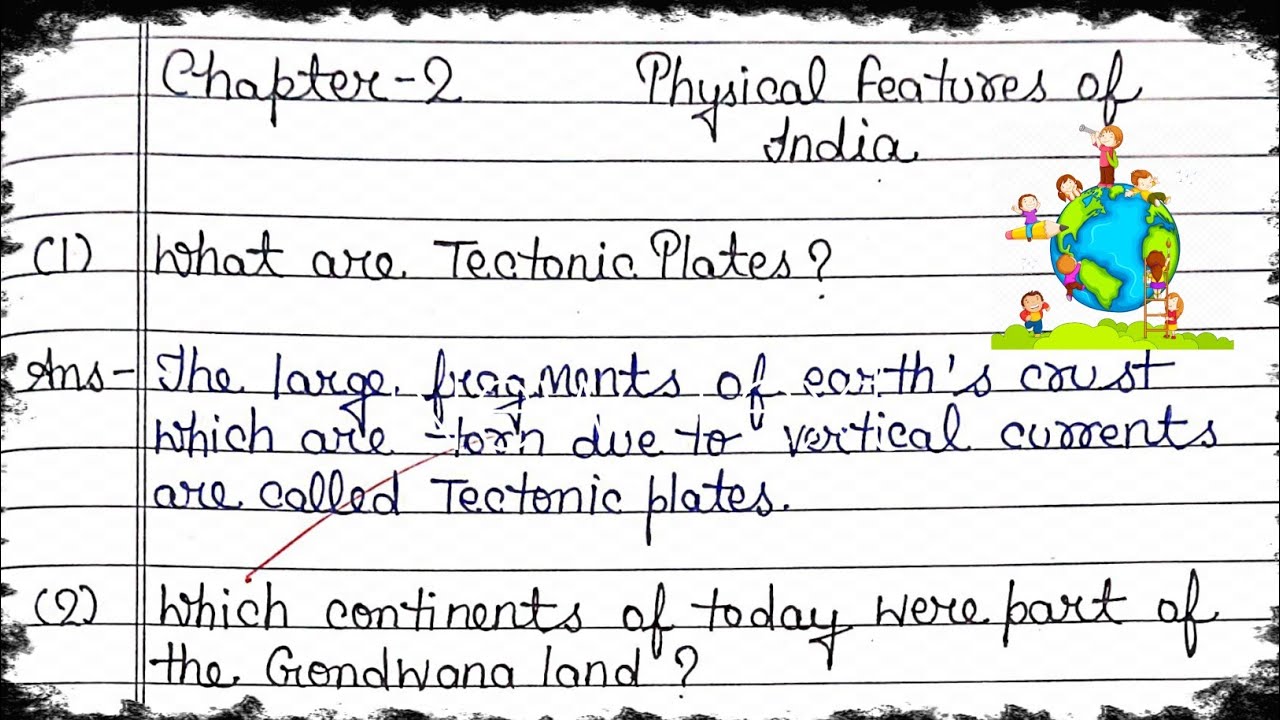 Chapter-2 Physical Features of
India
(1) What are Tectonic Plates?
Ans- The large fragments of earth's crust
which are torn due to vertical currents
are called Tectonic plates.
(2) Which continents of today were part of
the Gondwana land ?